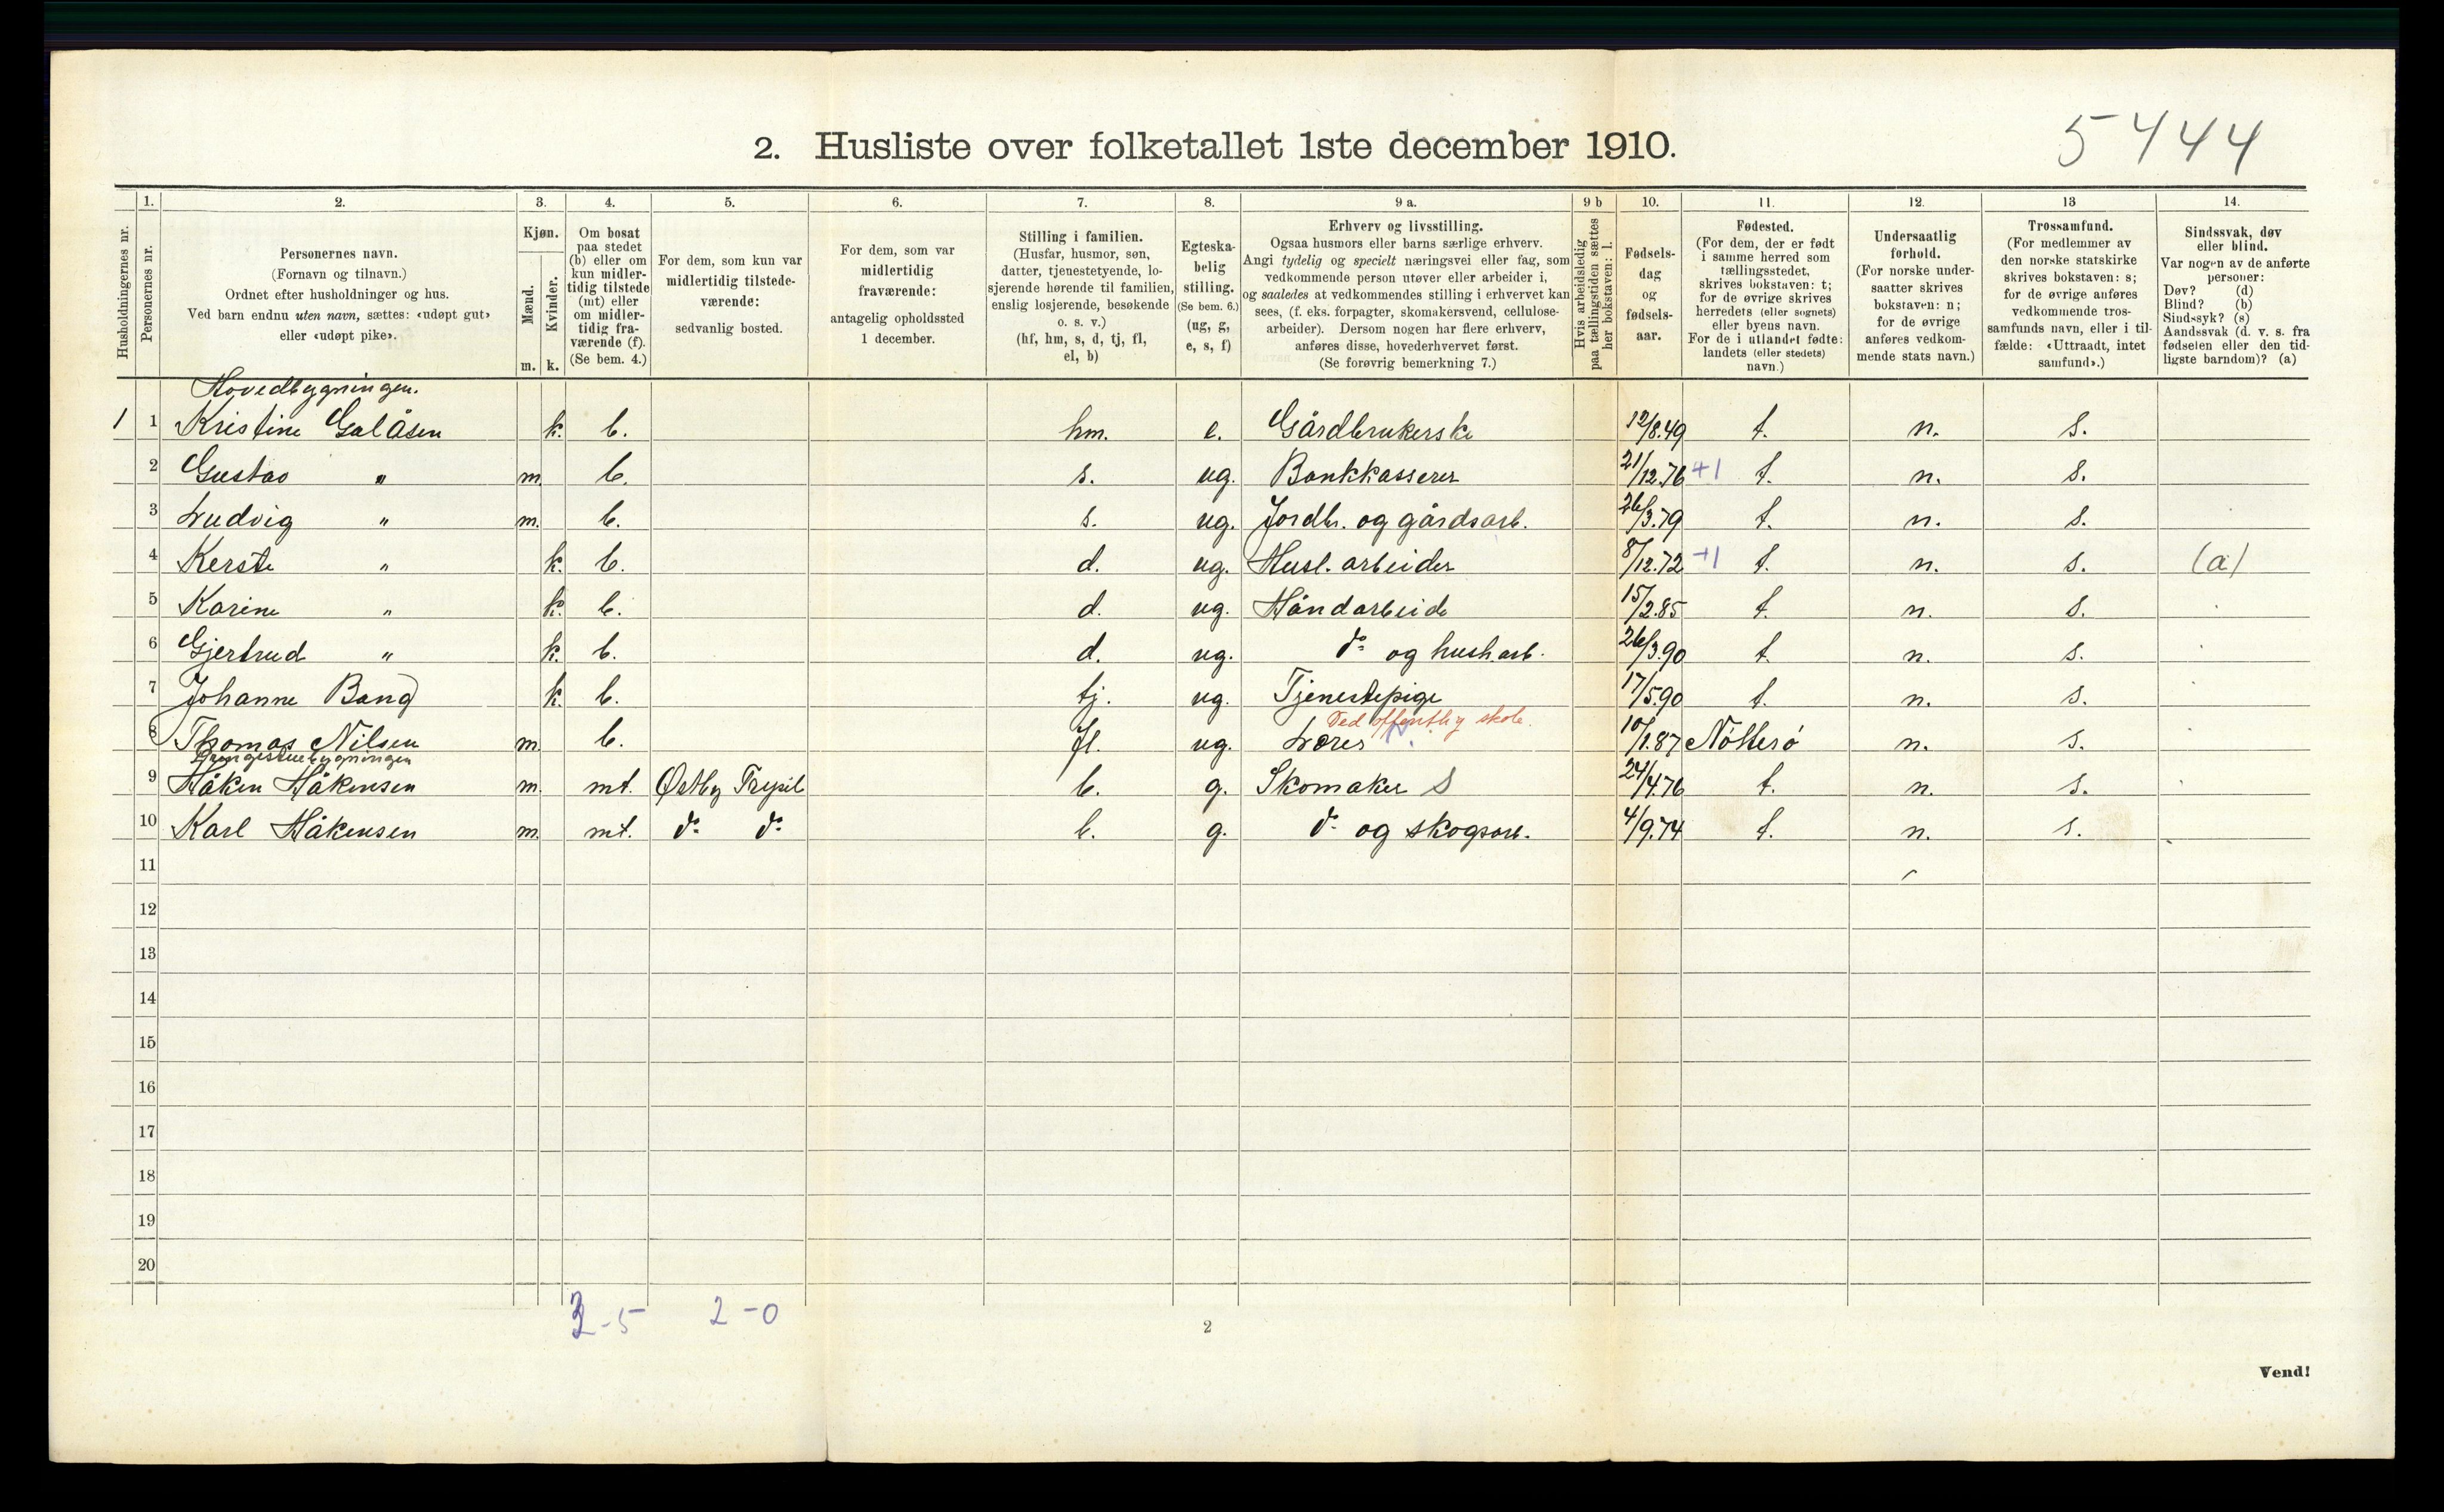 5444
2. Husliste over folketallet 1ste december 1910.
Husholdningernes nr.
1.
Personernes nr.
2.
Personernes navn.
(Fornavn og tilnavn.)
Ordnet efter husholdninger og hus.
Ved barn endnu uten navn, sættes: «udøpt gut»
eller «udøpt pike».
3.
Kjøn.
Mænd.
Kvinder.
m. k.
4.
Om bosat
paa stedet
(b) eller om
kun midler-
tidig tilstede
(mt) eller
om midler-
tidig fra-
værende (f).
(Se bem. 4.)
5.
For dem, som kun var
midlertidig tilstede-
værende:
sedvanlig bosted.
6.
For dem, som var
midlertidig
fraværende:
antagelig opholdssted
1 december.
7.
Stilling i familien.
(Husfar, husmor, søn,
datter, tjenestetyende, lo-
sjerende hørende til familien,
enslig losjerende, besøkende
o. s. v.)
(hf, hm, s, d, tj, fl,
el, b)
8.
Egteska-
belig
stilling.
(Se bem. 6.)
(ug, g,
e, s, f)
9 a.
Erhverv og livsstilling.
Ogsaa husmors eller barns særlige erhverv.
Angi tydelig og specielt næringsvei eller fag, som
vedkommende person utøver eller arbeider i,
og saaledes at vedkommendes stilling i erhvervet kan
sees, (f. eks. forpagter, skomakersvend, cellulose-
arbeider). Dersom nogen har flere erhverv,
anføres disse, hovederhvervet først.
(Se forøvrig bemerkning 7.)
9 b
Hvis arbeidsledig
paa tællingstiden sættes
her bokstaven: l.
10.
Fødsels-
dag
og
fødsels-
aar.
11.
Fødested.
(For dem, der er født
i samme herred som
tællingsstedet,
skrives bokstaven: t;
for de øvrige skrives
herredets (eller sognets)
eller byens navn.
For de i utlandet fødte:
landets (eller stedets)
navn.)
12.
Undersaatlig
forhold.
(For norske under-
saatter skrives
bokstaven: n;
for de øvrige
anføres vedkom-
mende stats navn.)
13
Trossamfund.
(For medlemmer av
den norske statskirke
skrives bokstaven: s;
for de øvrige anføres
vedkommende tros-
samfunds navn, eller i til-
fælde: «Uttraadt, intet
samfund».)
14.
Sindssvak, døv
eller blind.
Var nogen av de anførte
personer:
Døv? (d)
Blind? (b)
Sindssyk? (s)
Aandssvak (d. v. s. fra
fødselen eller den tid-
ligste barndom)? (a)
Hovedbygningen.
1 1 Kristine Galåsen k. b. hm. e. Gårdbrukerske 12/8.49 t. n. s.
2 Gustav " m. b. s. ug. Bankkasserer 21/12.76 +1 t. n. s.
3 Ludvig " m. b. s. ug. Jordbr. og gårdsarb. 26/3.79 t. n. s.
4 Kerste " k. b. d. ug. Husl. arbeider 8/12.72 +1 t. n. s. (a)
5 Karine " k. b. d. ug. Håndarbeide 15/2.85 t. n. s.
6 Gjertrud " k. b. d. ug. do og hush.arb. 26/3.90 t. n. s.
7 Johanne Bang k. b. tj. ug. Tjenestepige 17/5.90 t. n. s.
Ved offentlig skole.
8 Thomas Nilsen m. b. fl. ug. Lærer 10/1.87 Nötterö n. s.
9 Håken Håkensen m. mt. Østby Trysil b. g. Skomaker S 24/4.76 t. n. s.
10 Karl Håkensen m. mt. do do b. g. do og skogsarb. 4/9.74 t. n. s.
11
12
13
14
15
16
17
18
19
20
2-5 2-0
2
Vend!